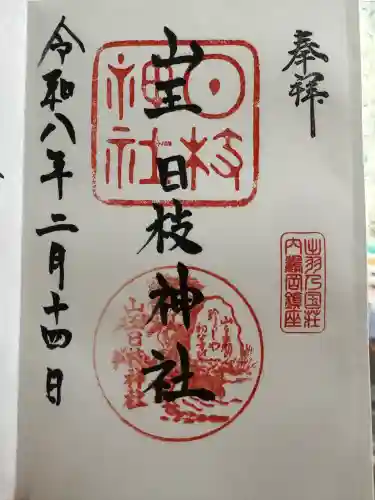 奉拝
出羽乃国荘
内鶴岡鎮座
山王日枝神社
日枝
神社
山王日枝神社
令和八年二月十四日